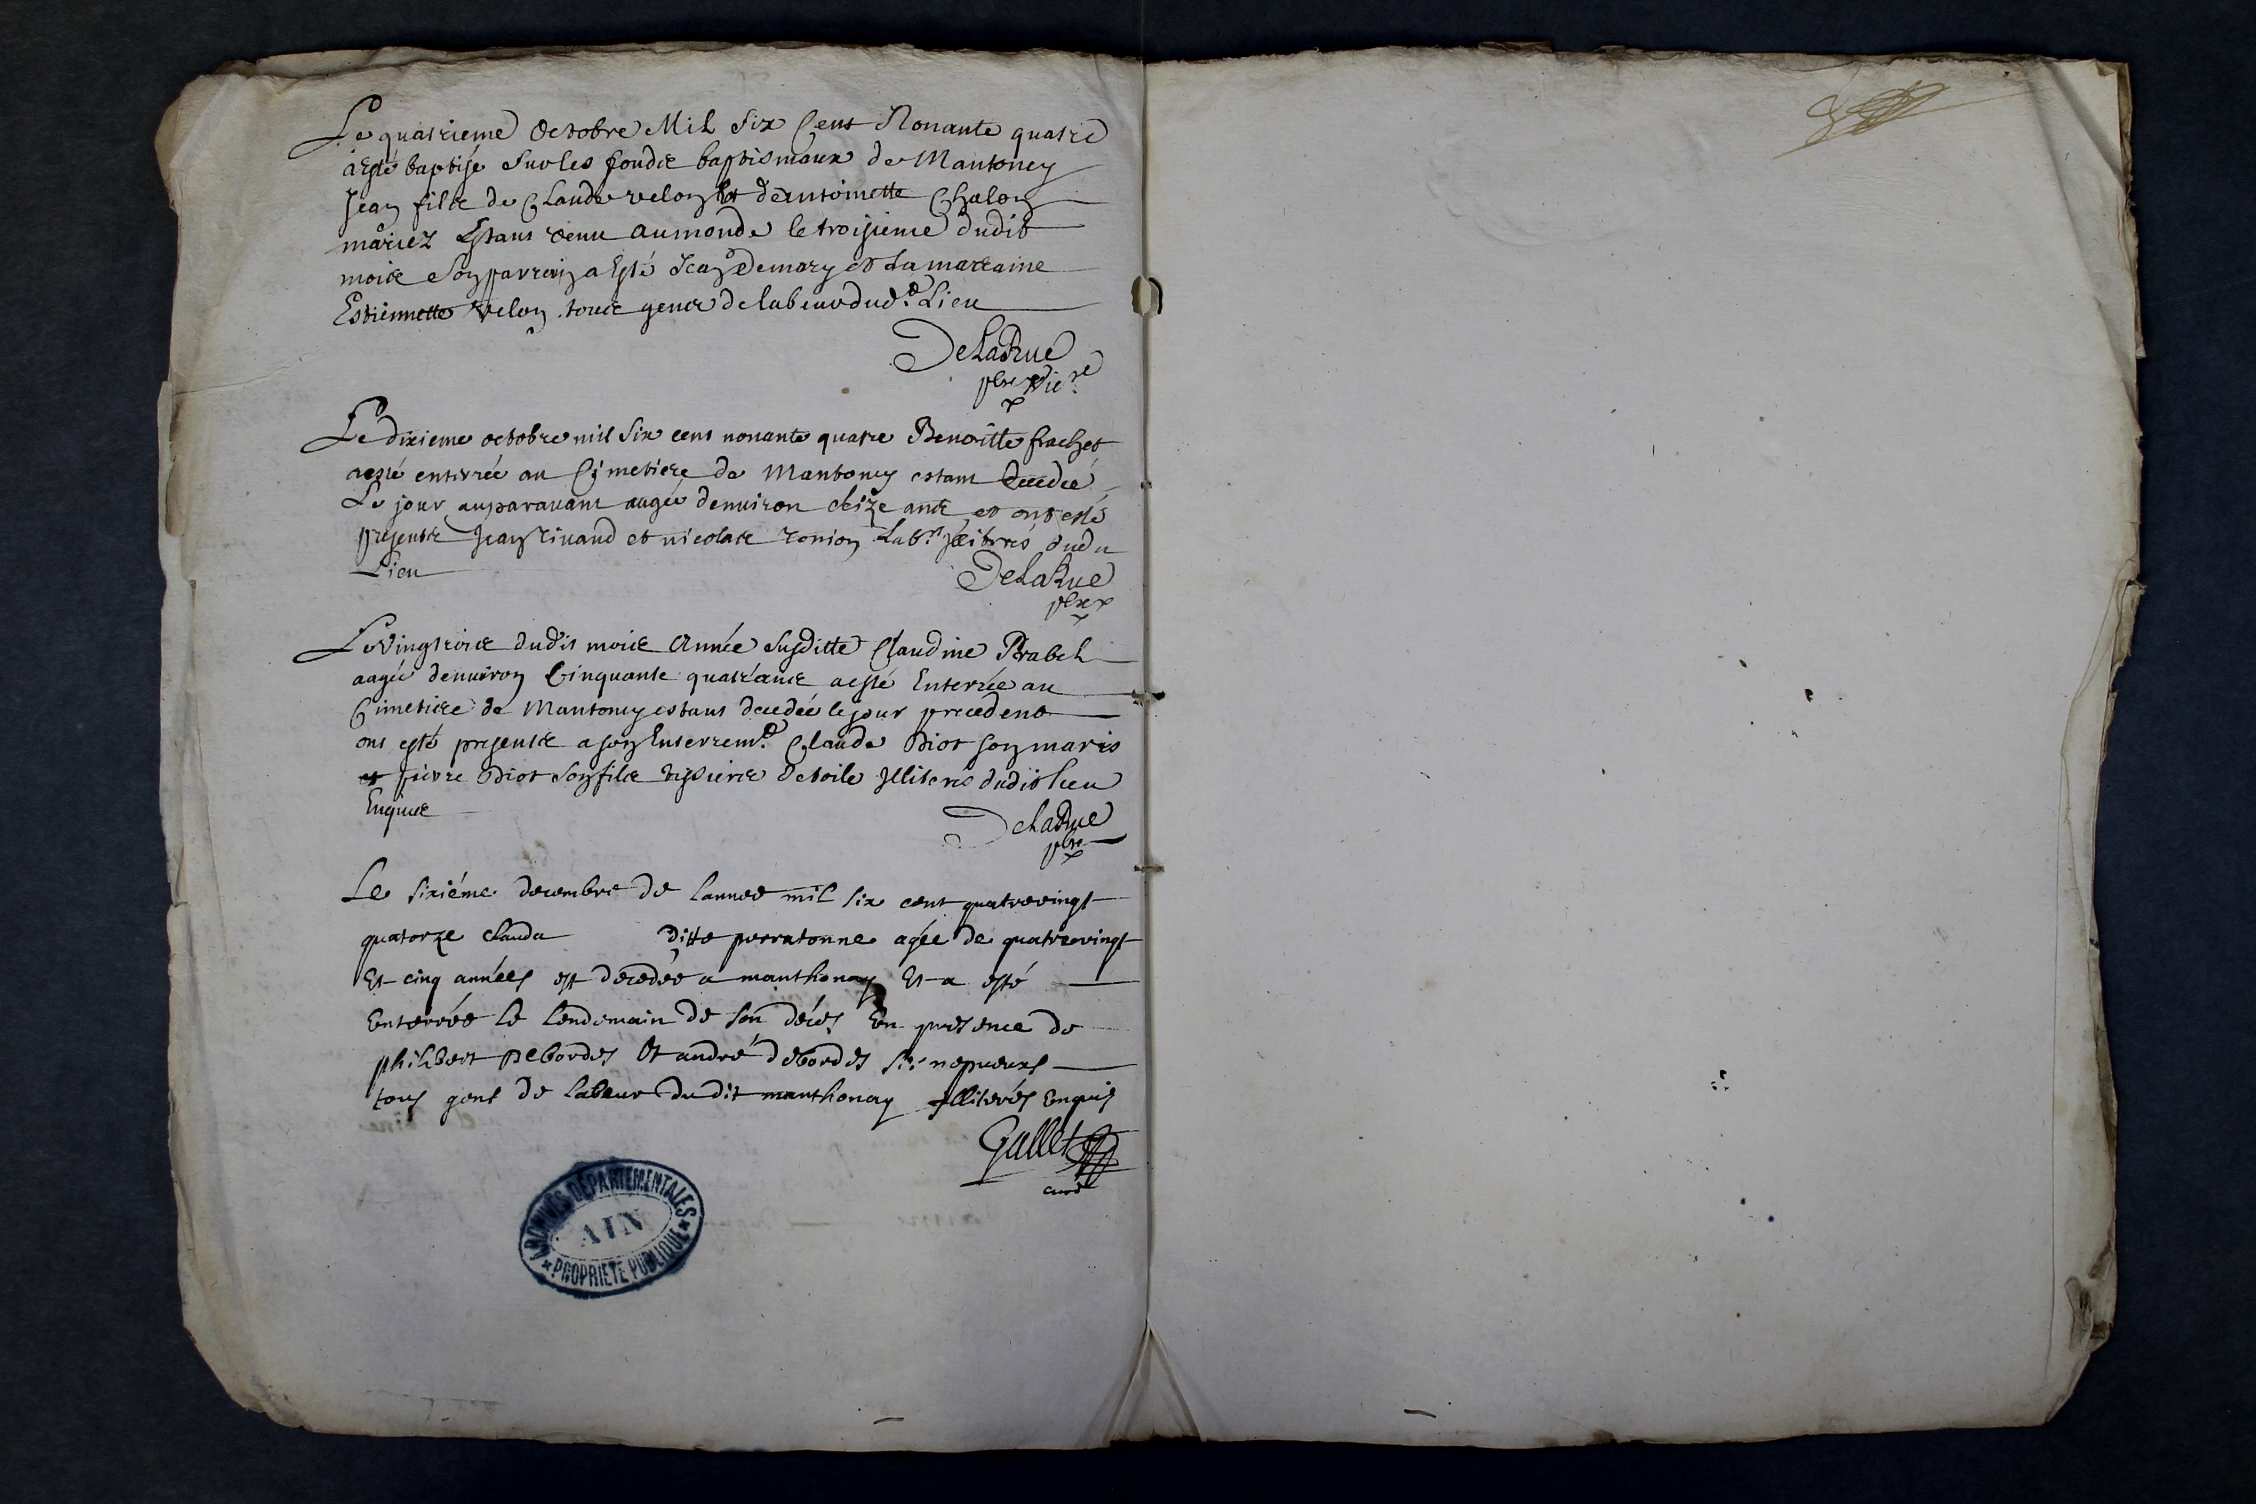 Le quatrieme Octobre Mil Six Cent Nonante quatre
a esté baptisé Sur les fondz baptismaux de Mantoney
Jean filz de Claude velon et dantoinette Chalon
mariez Estant venu au monde le troisieme dudit
moiz Son parrein a Esté Jean Demory et La marraine
Estiennette velon touz genz de labeur dud.t Lieu
DeLaRue
pbre Vic.re
Le dixieme octobre mil Six cens nonante quatre Benoitte frachet
a esté enterrée au Cimetiere de Mantoney estant decedée
Le jour auparavant aagée denviron seize anz et ont esté
presentz Jean rivaud et nicolaz ronion Lab.rs dudit
Lieu
DeLaRue
pbre
Le vingt troiz dudit moiz Année Susditte Claudine Brabel
aagée denviron Cinquante quatre anz a esté Enterrée au
Cimetiere de Mantoney estant decedée le jour precedent
ont esté presentz a son Enterrem.t Claude Diot son maris
et pierre Diot Son filz tissierz de toile Illiterés dudit lieu
Enquiz
DeLaRue
pbre
Le sixiéme decembre de lannee mil six cent quatrevingt
quatorze clauda ditte perratonne agée de quatrevingt
Et cinq années est decedée a manthonay Et a esté
Enterrée le lendemain de son décés En presence de
philibert Debordes Et andré debordes ses nepveux
tous gens de labeur du dit manthonay Illiterés Enquis
Gallet
curé
ARCHIVES DÉPARTEMENTALES
AIN
PROPRIÉTÉ PUBLIQUE